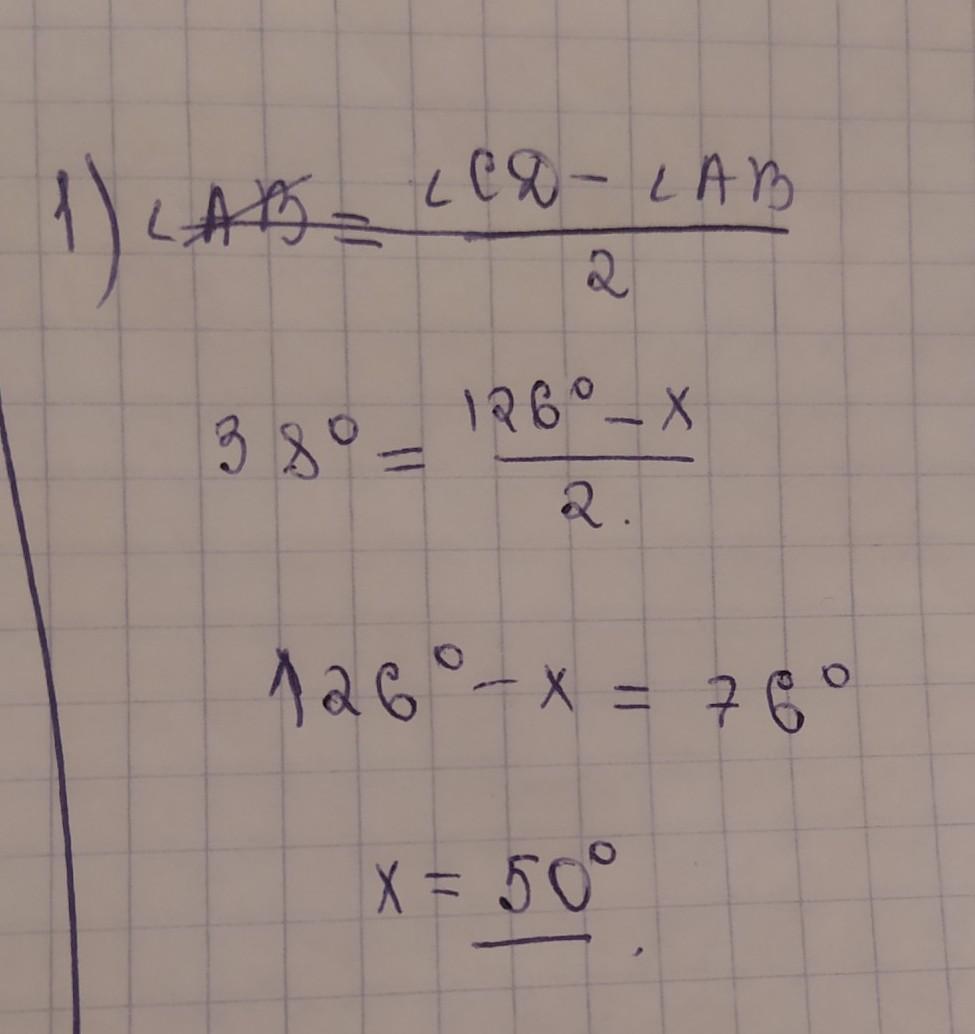 1) ∠ = (∠CD - ∠AB) / 2
38° = (126° - x) / 2.
126° - x = 76°
x = 50°.